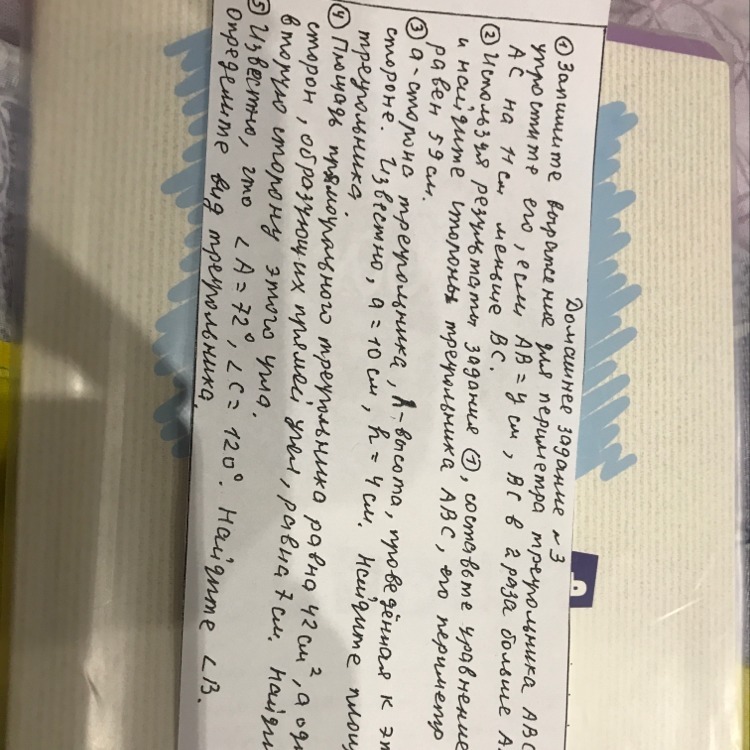 Домашнее задание №3
① Запишите выражение для периметра треугольника ABC
упростите его, если AB = y см, BC в 2 раза больше A
AC на 11 см меньше BC.
② Используя результаты задания ①, составьте уравнение
и найдите стороны треугольника ABC, его периметр
равен 59 см.
③ a - сторона треугольника, h - высота, проведённая к эт
стороне. Известно, a = 10 см, h = 4 см. Найдите площ
треугольника.
④ Площадь прямоугольного треугольника равна 42 см², а од
сторон, образующих прямой угол, равна 7 см. Найди
вторую сторону этого угла.
⑤ Известно, что ∠A = 72°, ∠C = 120°. Найдите ∠B.
Определите вид треугольника.